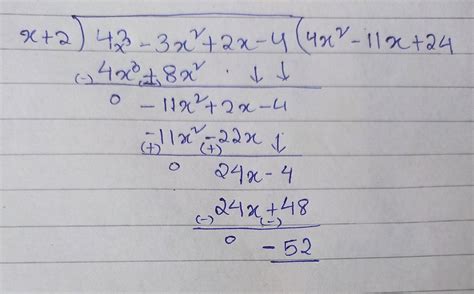 x+2) 4x³ - 3x² + 2x - 4 (4x² - 11x + 24
(-) 4x³ (-)+ 8x² . ↓ ↓
0 - 11x² + 2x - 4
(+) -11x² (+) -22x ↓
0 24x - 4
(-) 24x (-) + 48
0 - 52